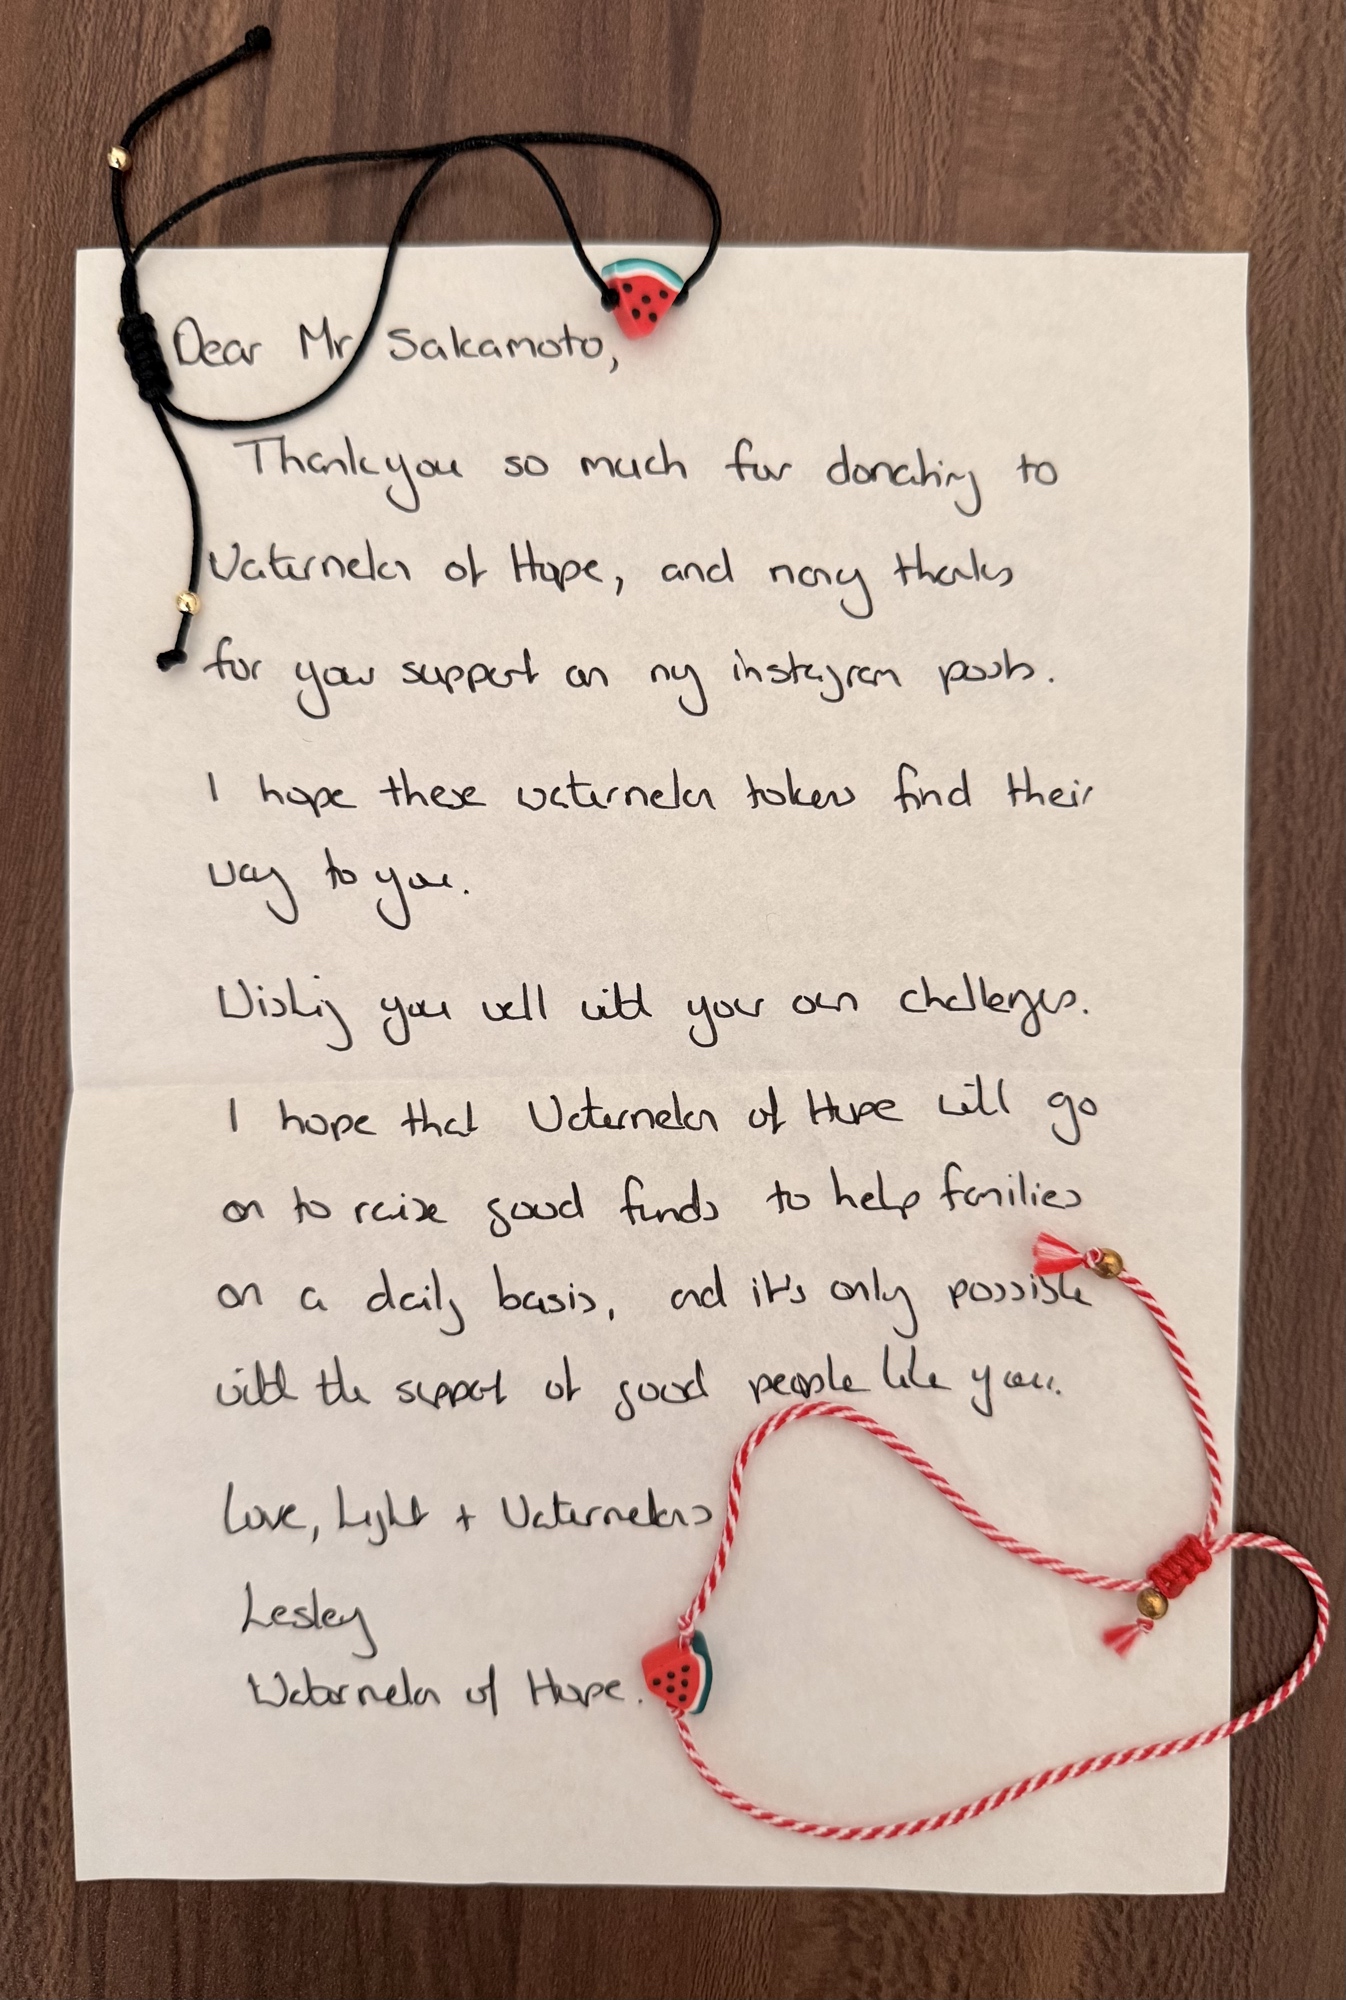 Dear Mr Sakamoto,
Thankyou so much for donating to
Watermelon of Hope, and many thanks
for your support on my instagram posts.
I hope these watermelon tokens find their
way to you.
Wishing you well with your own challenges.
I hope that Watermelon of Hope will go
on to raise good funds to help families
on a daily basis, and it's only possible
with the support of good people like you.
Love, Light + Watermelons
Lesley
Watermelon of Hope.